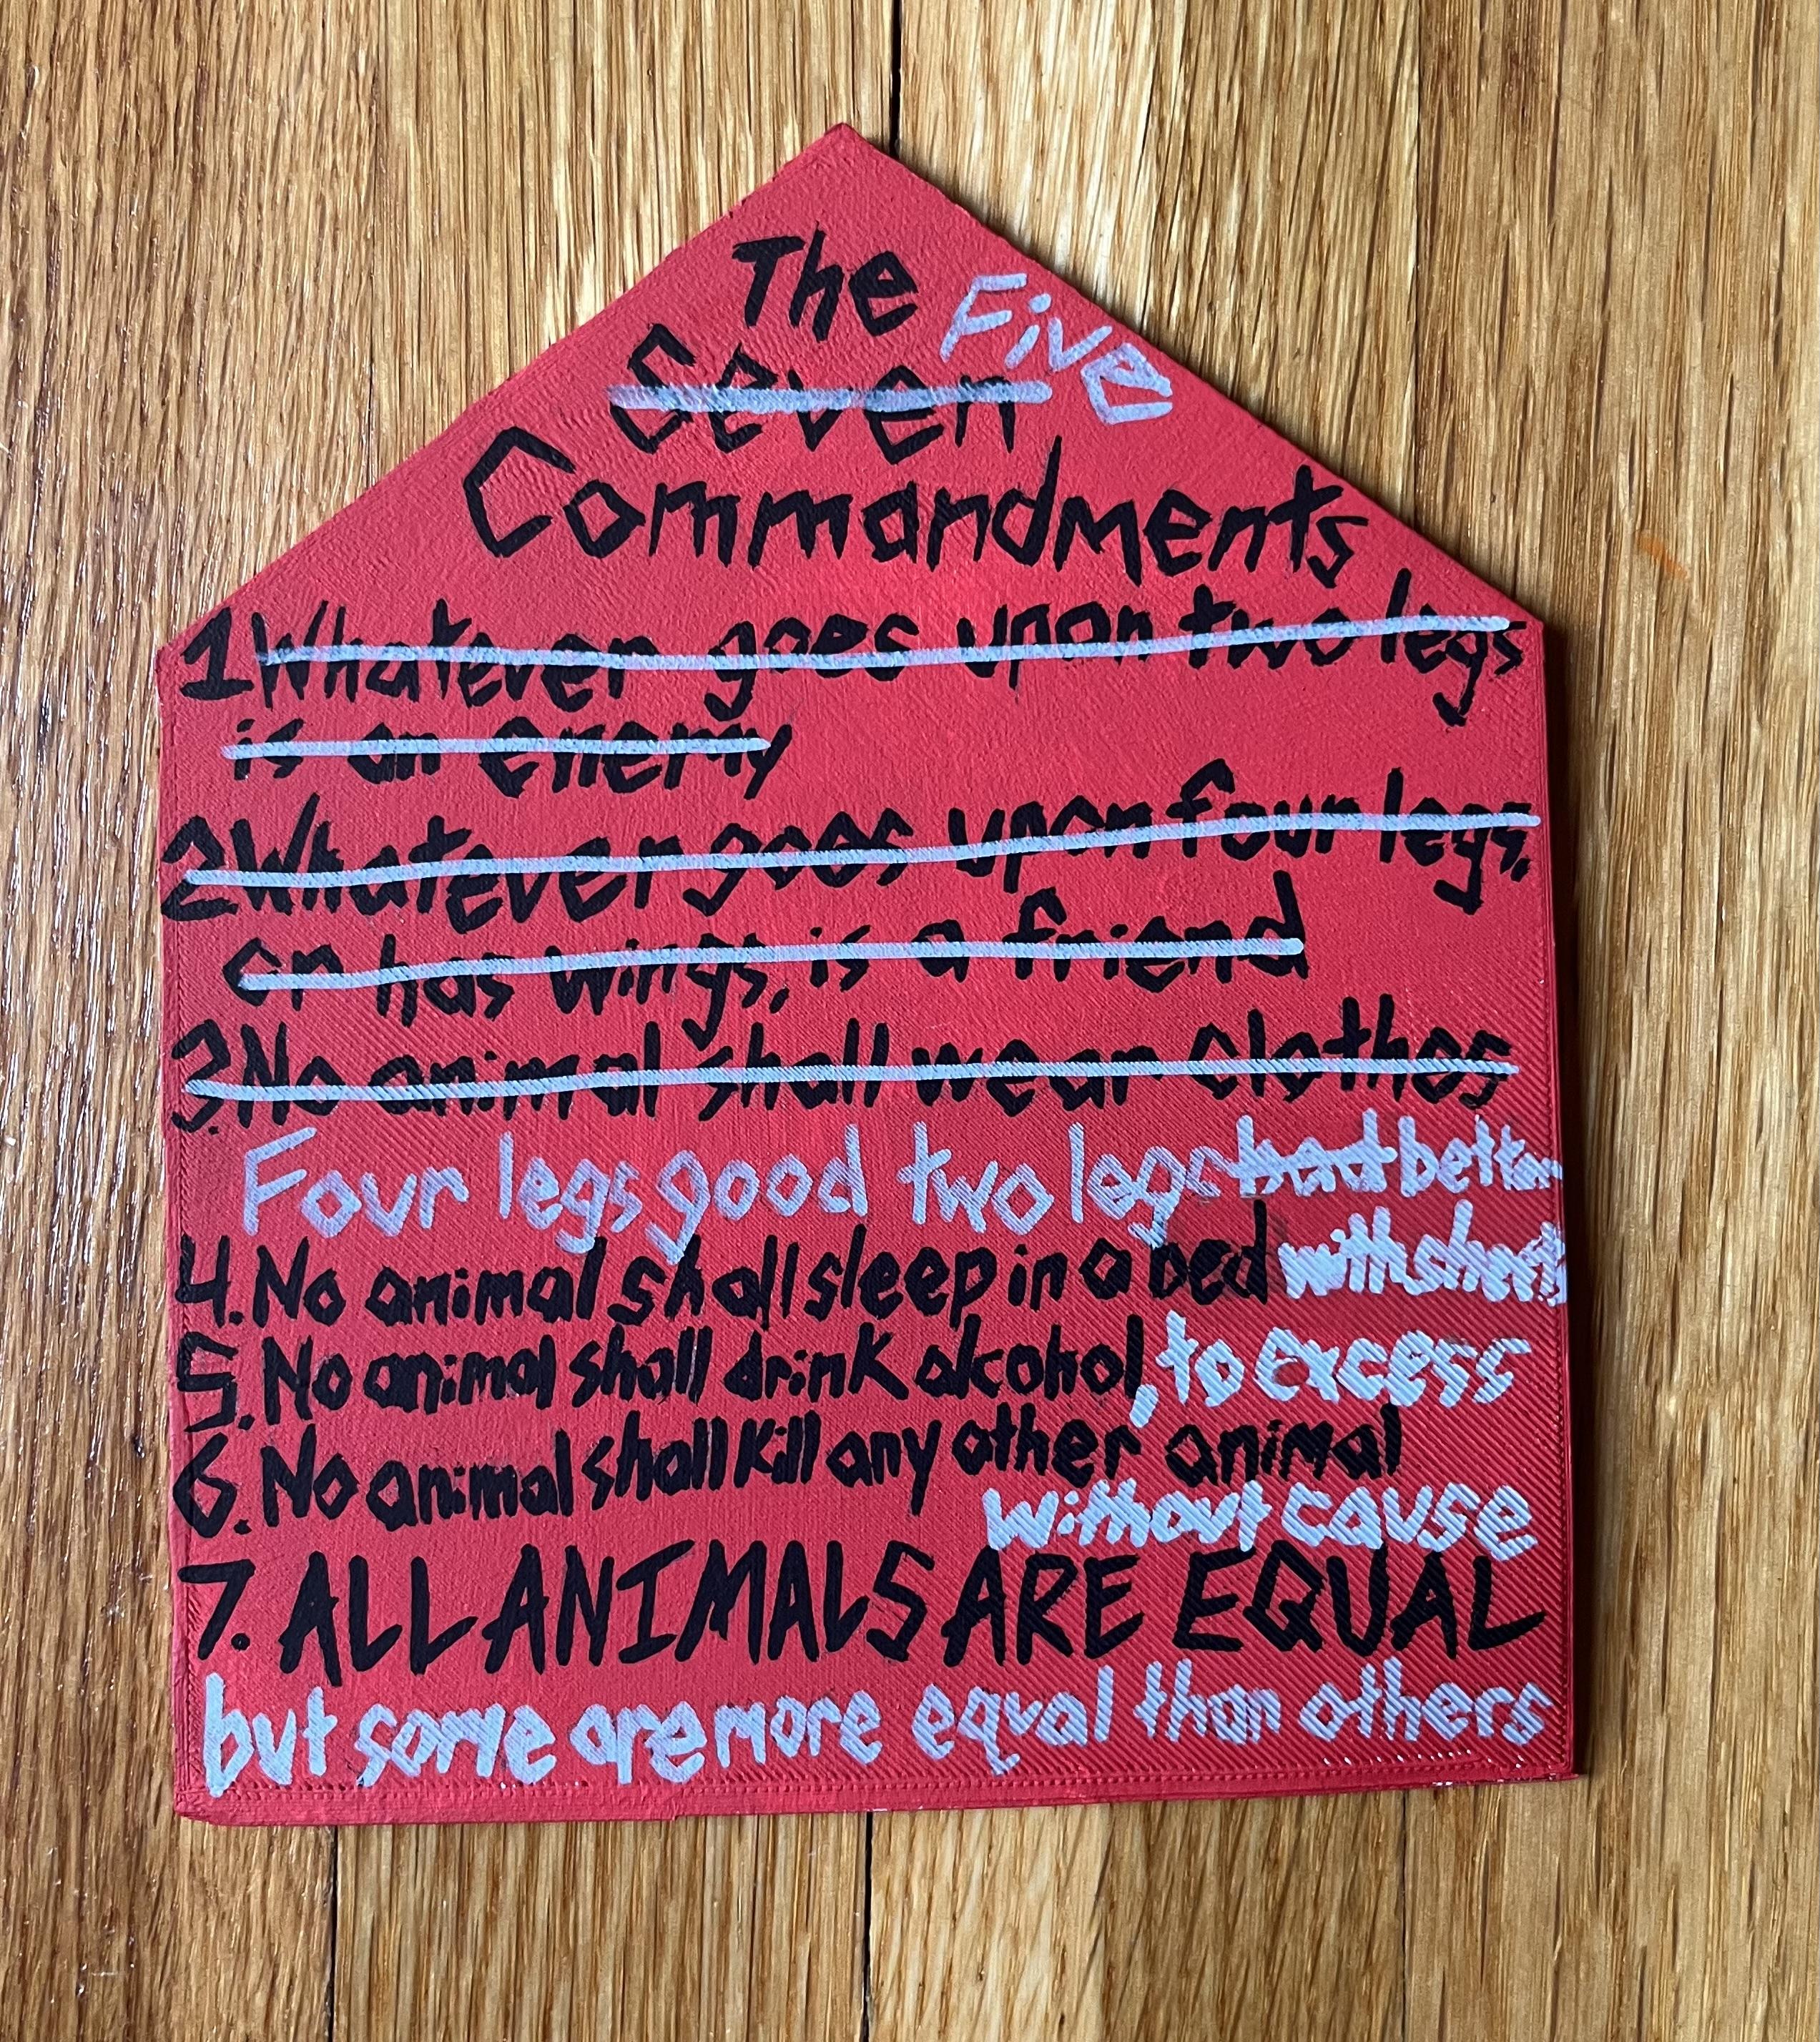 The Five
Seven
Commandments
1 Whatever goes upon two legs
is an enemy
2 Whatever goes upon four legs,
or has wings, is a friend
3. No animal shall wear clothes
Four legs good two legs bad better
4. No animal shall sleep in a bed with sheets
5. No animal shall drink alcohol, to excess
6. No animal shall kill any other animal
without cause
7. ALL ANIMALS ARE EQUAL
but some are more equal than others